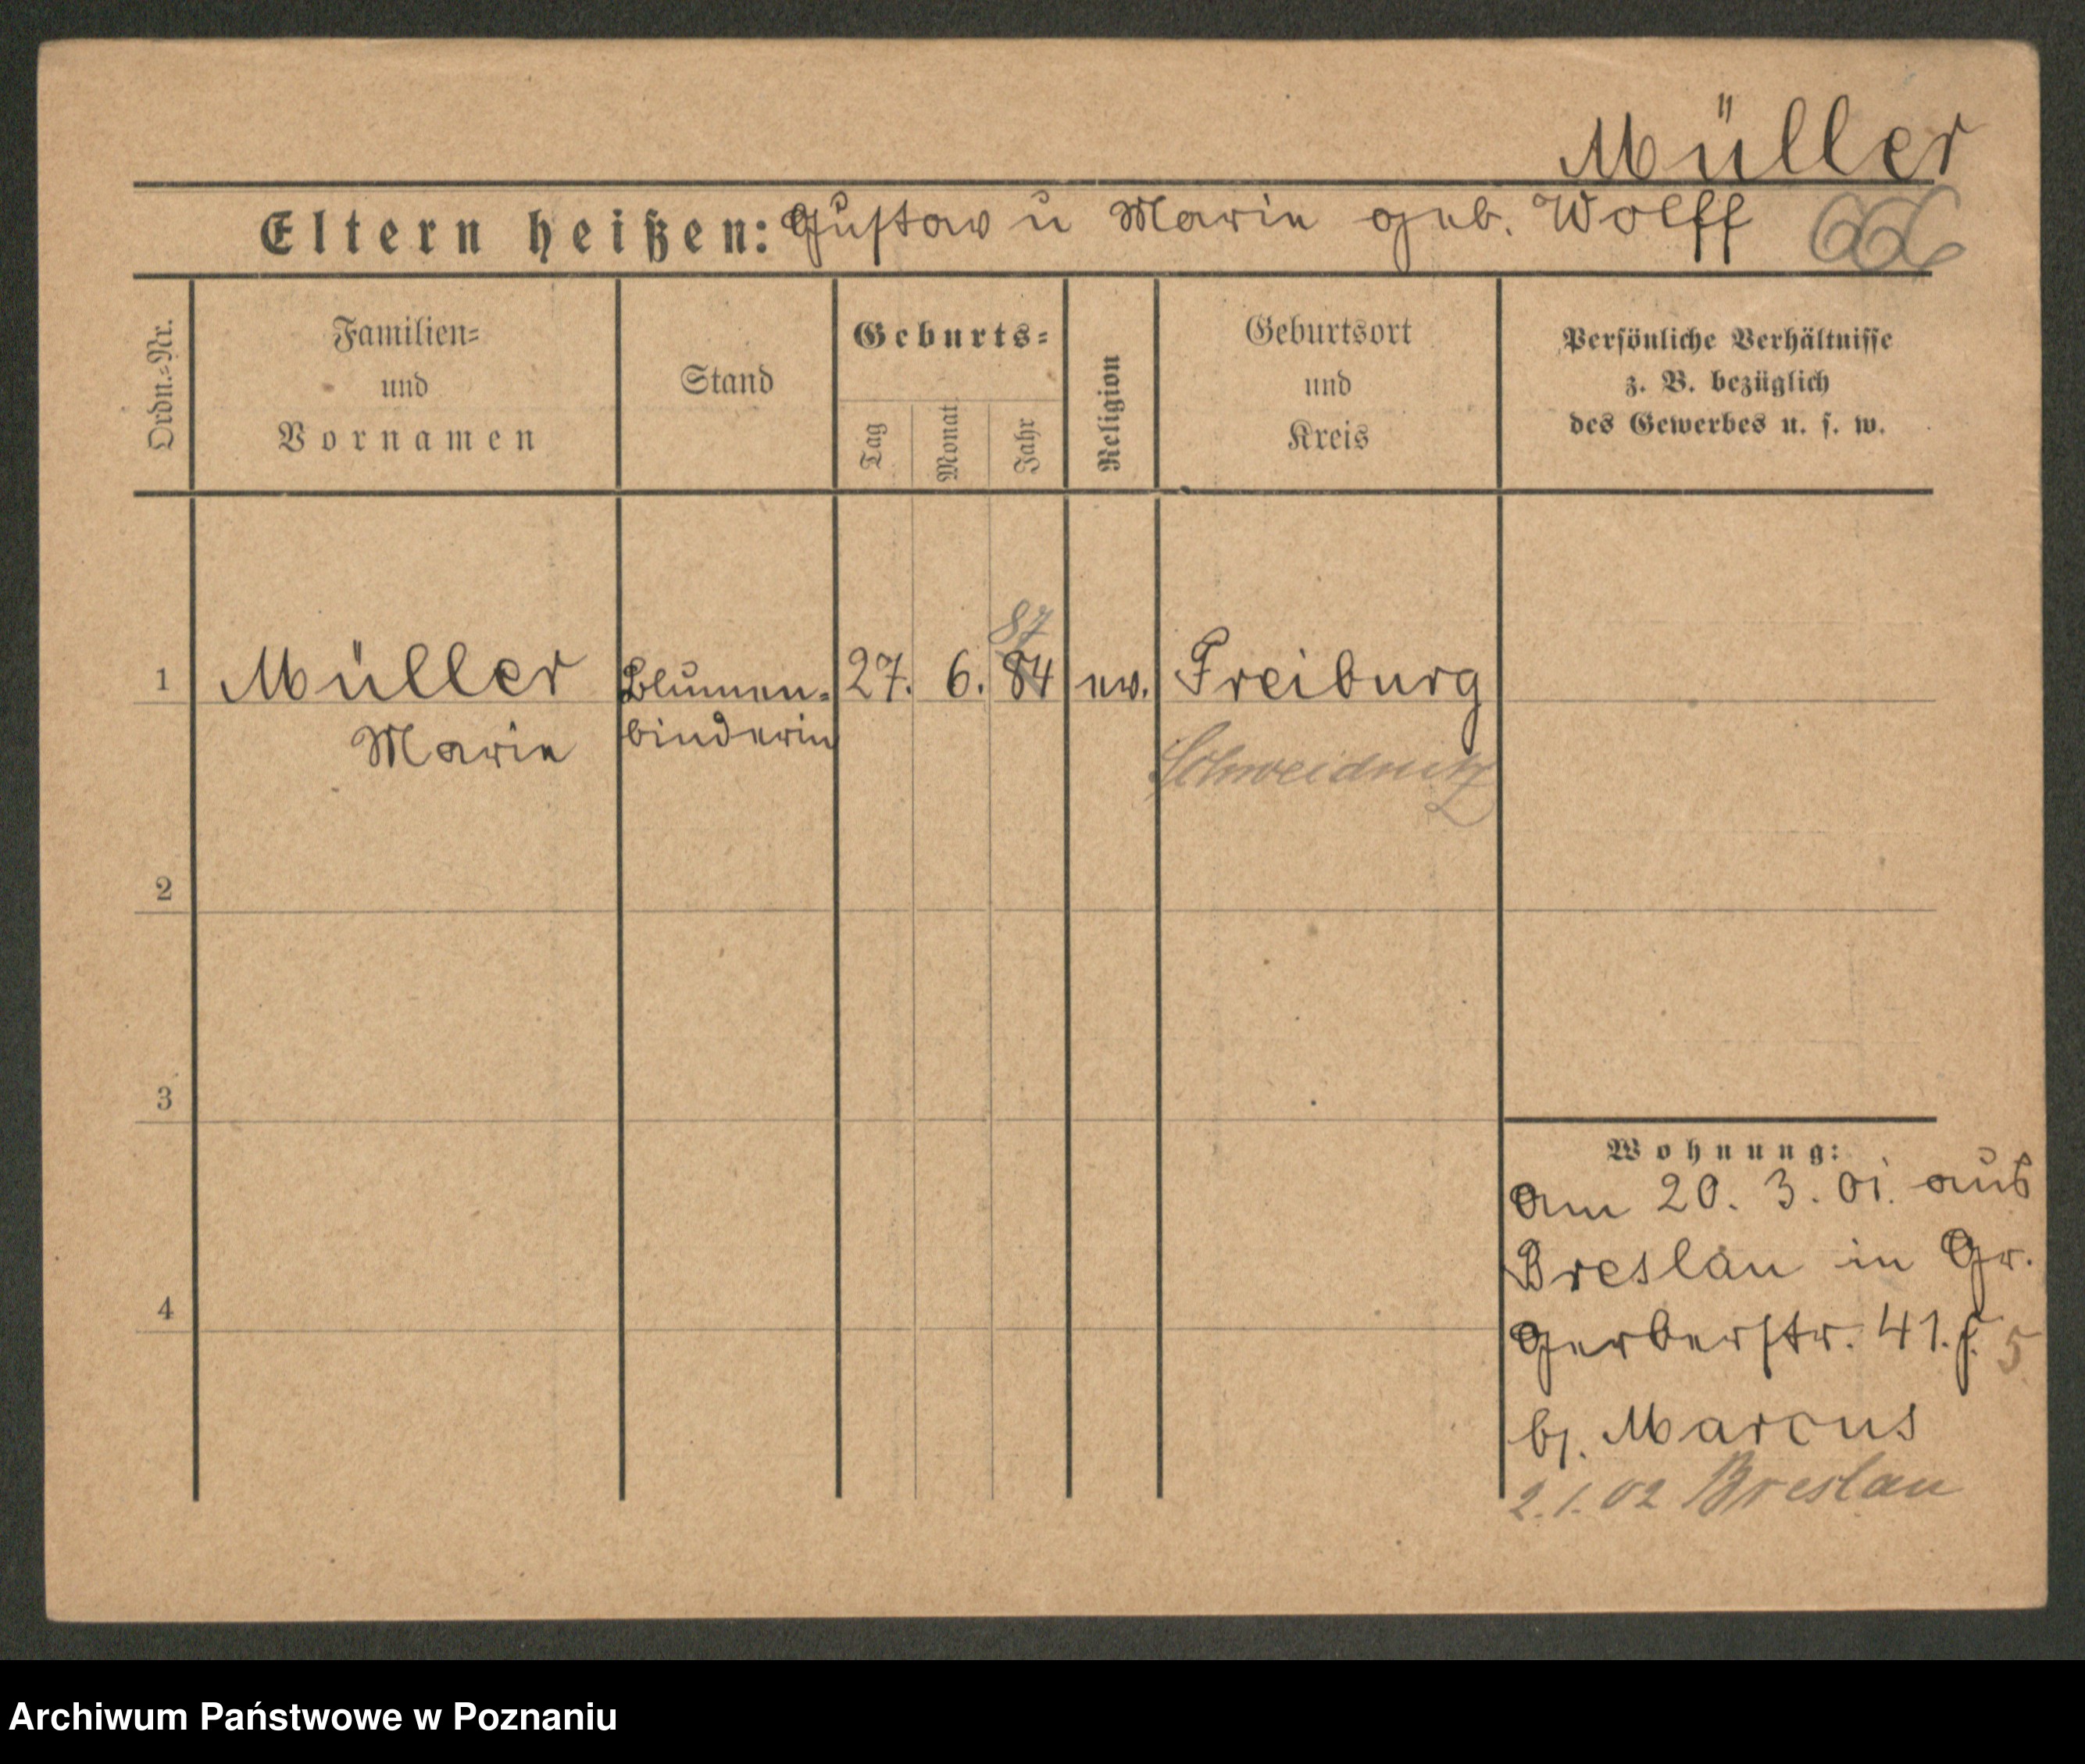 Müller
Eltern heißen: Gustav u Marie geb. Wolff
666
Ordn.=Nr.
Familien=
und
Vornamen
Stand
Geburts=
Tag
Monat
Jahr
Religion
Geburtsort
und
Kreis
Persönliche Verhältnisse
z. B. bezüglich
des Gewerbes u. s. w.
87
1 Müller Blumen= 27. 6. 84 ev. Freiburg
Marie binderin Schweidnitz
2
3
4
Wohnung:
am 20. 3. 01. aus
Breslau in Gr.
Gerberstr. 41. 5
bj. Marcus
2.1.02 Breslau
Archiwum Państwowe w Poznaniu